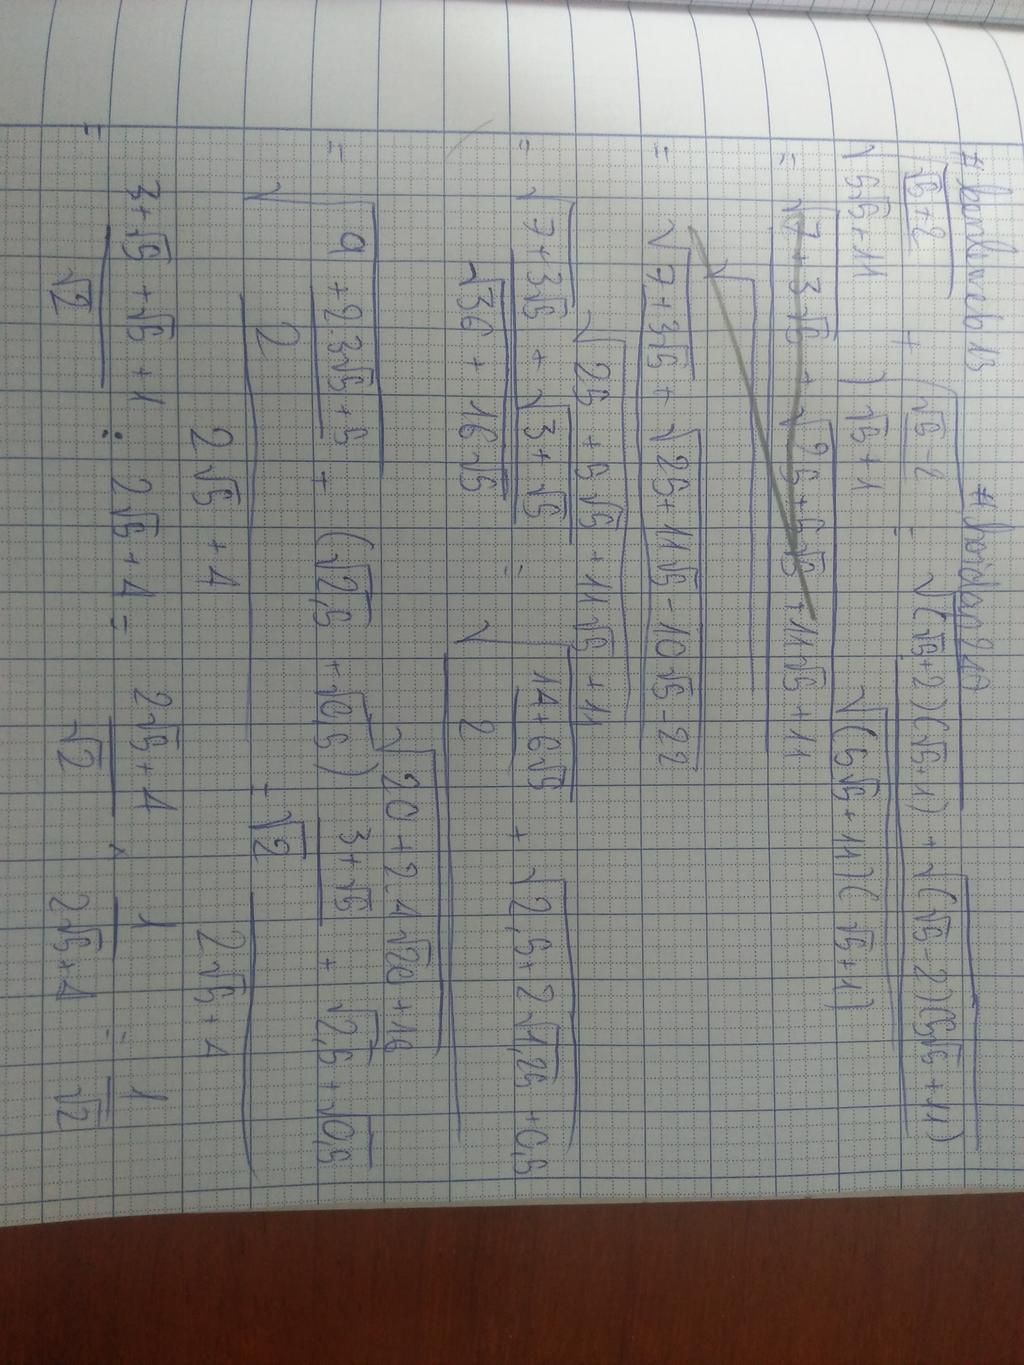 # hoidap247
√(√5+2)/√(5√5+11) + √(√5-2)/√(√5+1) = (√((√5+2)(√5+1)) + √((√5-2)(5√5+11)))/√((5√5+11)(√5+1))
= √7+3√5 + √25+5√5+11√5+11
= (√(7+3√5) + √(25+11√5-10√5-22))/√(25+5√5+11√5+11)
= (√(7+3√5) + √(3+√5))/√(36+16√5) = (√((14+6√5)/2) + √(2,5+2√1,25+0,5))/√(20+2.4√20+16)
= (√((9+2.3√5+5)/2) + (√2,5+√0,5))/(2√5+4) = ((3+√5)/√2 + √2,5+√0,5)/(2√5+4)
= (3+√5+√5+1)/√2 : 2√5+4 = (2√5+4)/√2 × 1/(2√5+4) = 1/√2